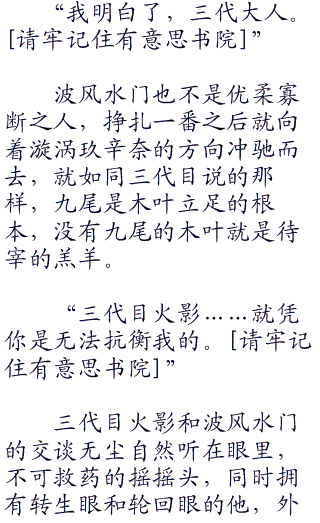 “我明白了，三代大人。
[请牢记住有意思书院]”
波风水门也不是优柔寡
断之人，挣扎一番之后就向
着漩涡玖辛奈的方向冲驰而
去，就如同三代目说的那
样，九尾是木叶立足的根
本，没有九尾的木叶就是待
宰的羔羊。
“三代目火影……就凭
你是无法抗衡我的。[请牢记
住有意思书院]”
三代目火影和波风水门
的交谈无尘自然听在眼里，
不可救药的摇摇头，同时拥
有转生眼和轮回眼的他，外